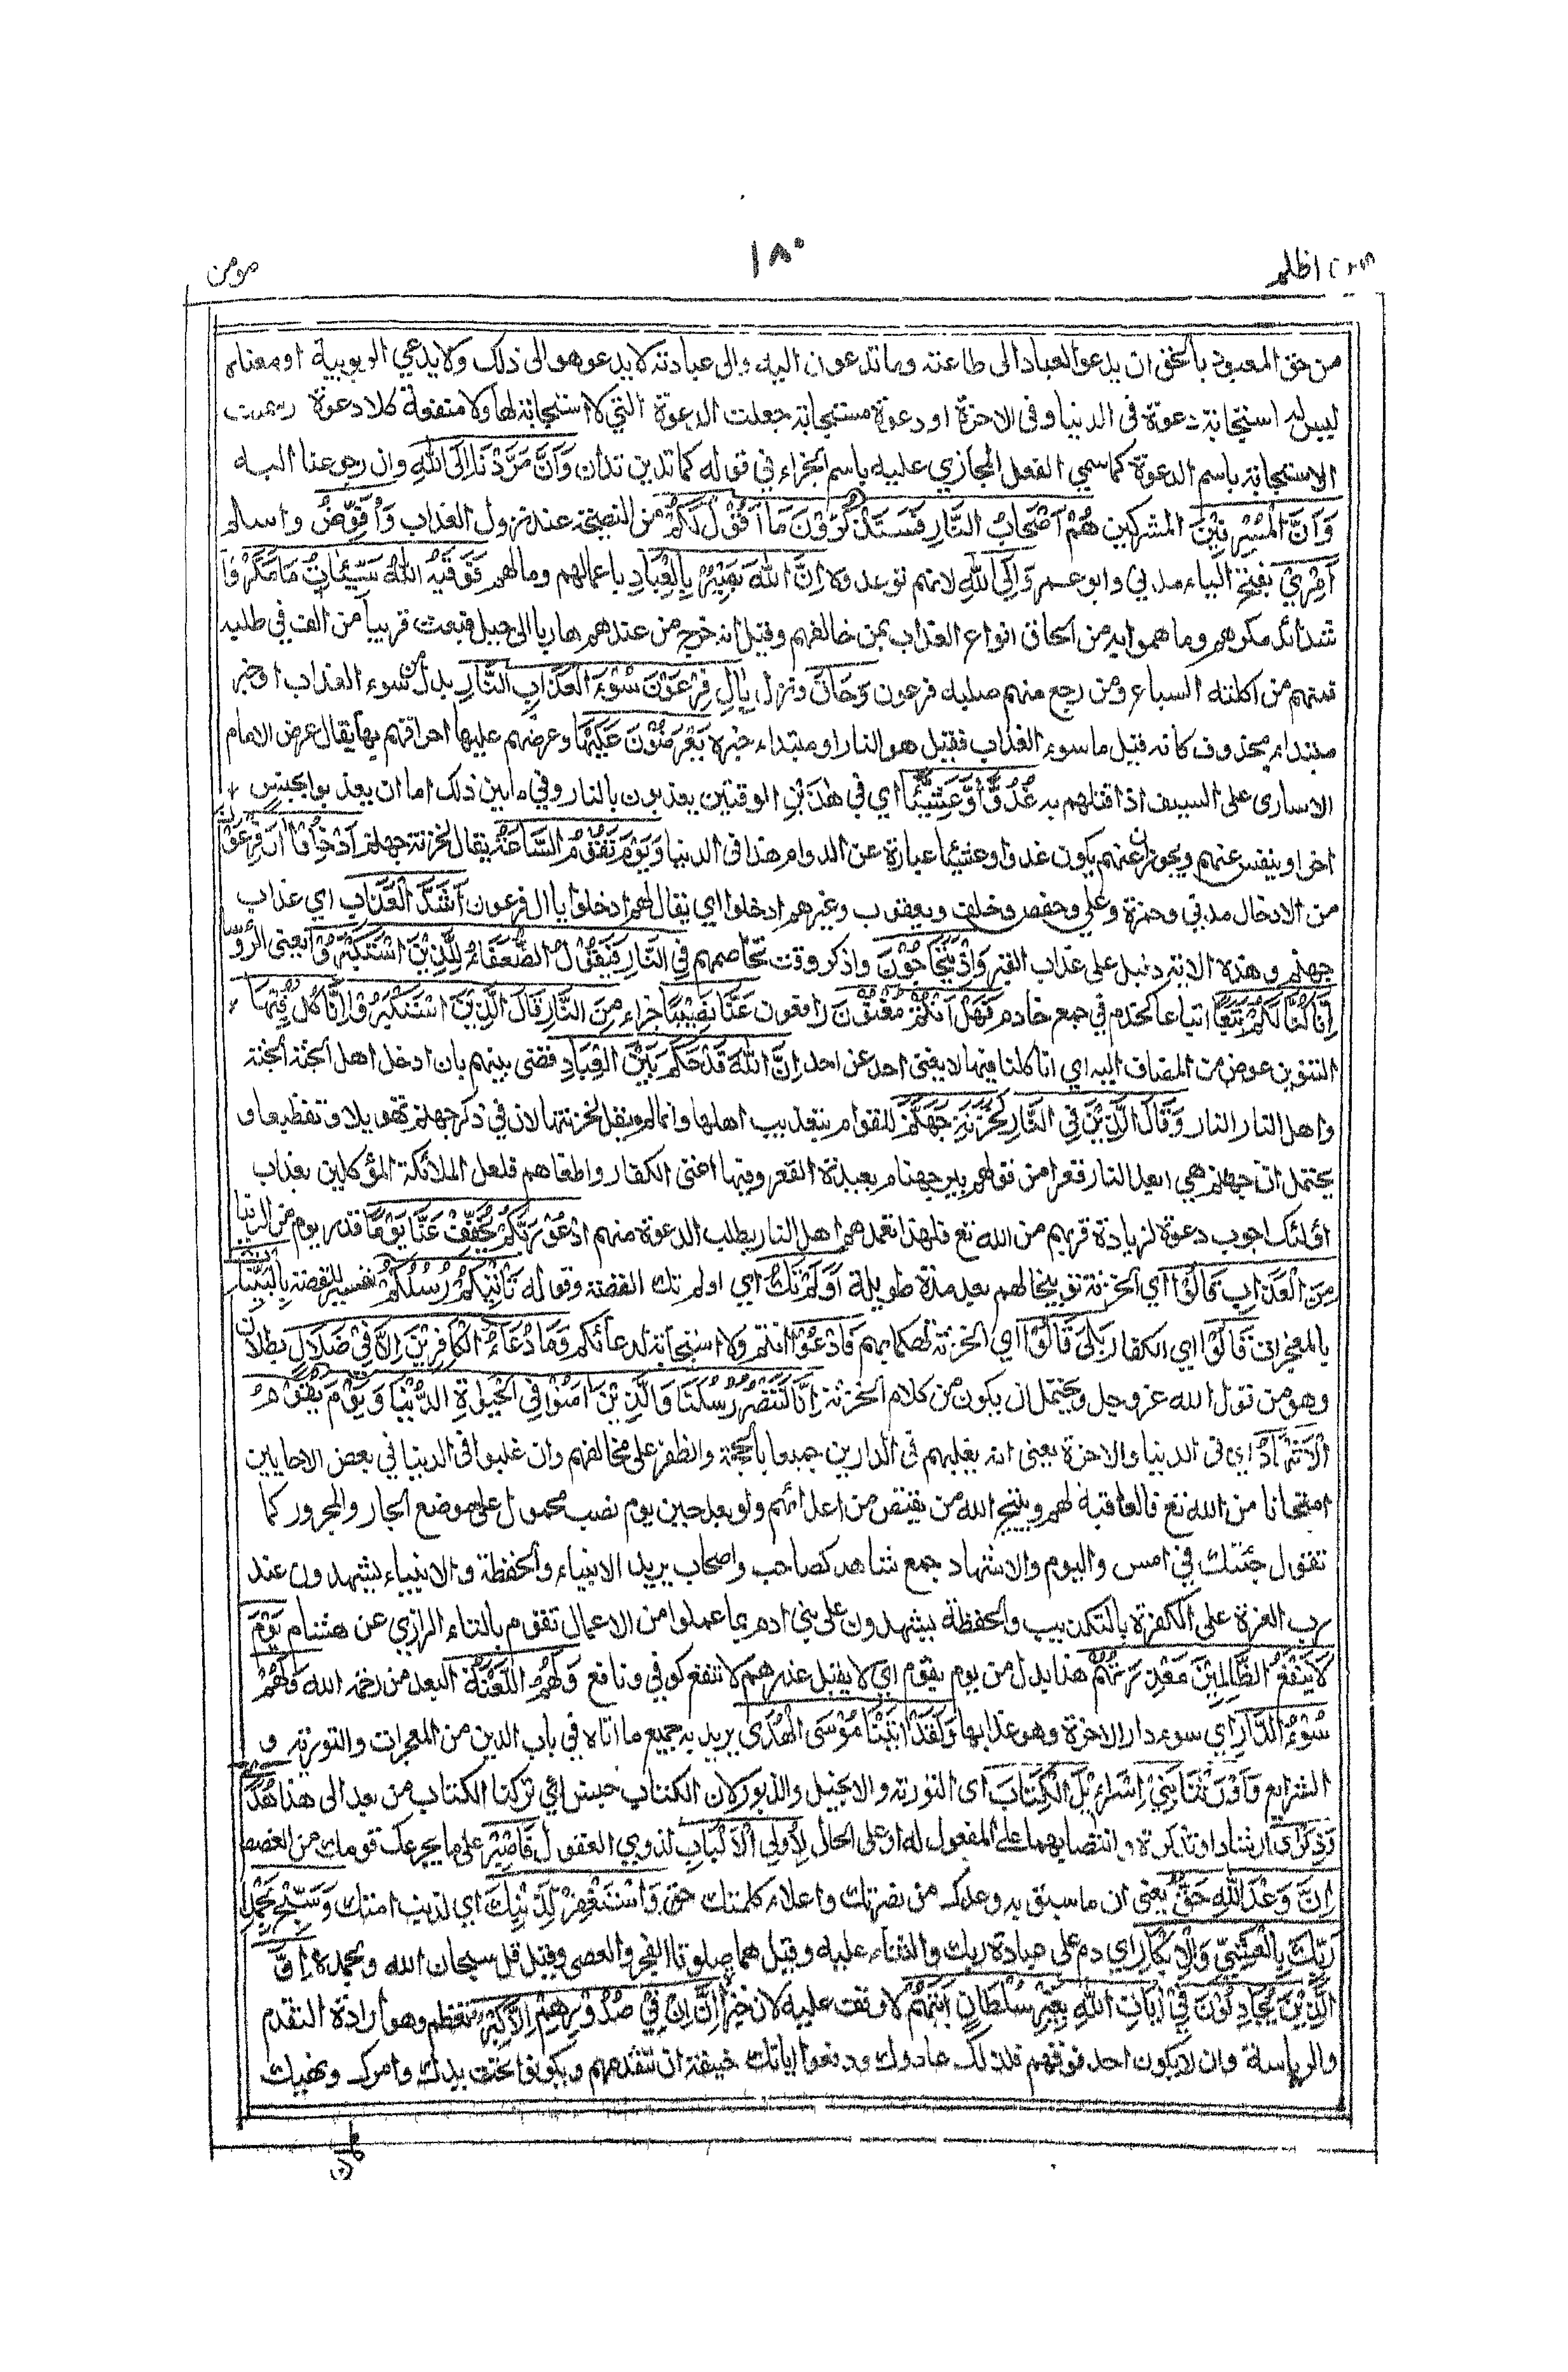 اظلم ١٨٠ مومن
من حق المعبود بالحق ان يدعو العباد الى طاعته وما تدعون اليه والى عبادته لا يدعو هو الى ذلك ولا يدعي الربوبية او معناه
ليس له استجابة دعوة فى الدنيا وفى الاخرة او دعوة مستجابة جعلت الدعوة التي لا استجابة لها ولا منفعة كلا دعوة وسميت
الاستجابة باسم الدعوة كما سمي الفعل المجازي عليه باسم الجزاء في قوله كما تدين تدان وَاَنَّ مَرَدَّنَا اِلَى اللهِ وان رجوعنا اليه
وَاَنَّ الْمُسْرِفِيْنَ المشركين هُمْ اَصْحَابُ النَّارِ فَسَتَذْكُرُوْنَ مَا اَقُوْلُ لَكُمْ من النصيحة عند نزول العذاب وَاُفَوِّضُ واسلم
اَمْرِيْ بفتح الياء مدني وابو عمرو اِلَى اللهِ لانهم توعدوه اِنَّ اللهَ بَصِيْرٌ بِالْعِبَادِ باعمالهم ومالهم فَوَقٰهُ اللهُ سَيِّئَاتِ مَا مَكَرُوْا
شدائد مكرهم وما هموا به من الحاق انواع العذاب بمن خالفهم وقيل انه خرج من عندهم هاربا الى جبل فبعث قريبا من الف في طلبه
فمنهم من اكلته السباع ومن رجع منهم صلبه فرعون وَحَاقَ ونزل بِاٰلِ فِرْعَوْنَ سُوْءُ الْعَذَابِ النَّارُ بدل من سوء العذاب او خبر
مبتداء محذوف كانه قيل ما سوء العذاب فقيل هو النار او مبتداء خبره يُعْرَضُوْنَ عَلَيْهَا وعرضهم عليها احراقهم بها يقال عرض الامام
الاسارى على السيف اذا قتلهم به غُدُوًّا وَّعَشِيًّا اي في هذين الوقتين يعذبون بالنار وفي ما بين ذلك اما ان يعذبوا بجنس
اخر او ينفس عنهم ويجوز ان يكون غدوا وعشيا عبارة عن الدوام هذا فى الدنيا وَيَوْمَ تَقُوْمُ السَّاعَةُ يقال لخزنة جهنم اَدْخِلُوْا اٰلَ فِرْعَوْنَ
من الادخال مدني وحمزة وعلي وحفص وخلف ويعقوب وغيرهم ادخلوا اي يقال لهم ادخلوا يا ال فرعون اَشَدَّ الْعَذَابِ اي عذاب
جهنم وهذه الاية دليل على عذاب القبر وَاِذْ يَتَحَاجُّوْنَ واذكر وقت تخاصمهم فِي النَّارِ فَيَقُوْلُ الضُّعَفَاءُ لِلَّذِيْنَ اسْتَكْبَرُوْا يعنى الرؤسا
اِنَّا كُنَّا لَكُمْ تَبَعًا اتباعا كخدم في جمع خادم فَهَلْ اَنْتُمْ مُغْنُوْنَ دافعون عَنَّا نَصِيْبًا جزاء مِنَ النَّارِ قَالَ الَّذِيْنَ اسْتَكْبَرُوْا اِنَّا كُلٌّ فِيْهَا
التنوين عوض من المضاف اليه اي انا كلنا فيها لا يغنى احد عن احد اِنَّ اللهَ قَدْ حَكَمَ بَيْنَ الْعِبَادِ قضى بينهم بان ادخل اهل الجنة الجنة
واهل النار النار وَقَالَ الَّذِيْنَ فِي النَّارِ لِخَزَنَةِ جَهَنَّمَ للقوام بتعذيب اهلها وانما لم يقل لخزنتها لان في ذكر جهنم تهويلا وتفظيعا و
يحتمل ان جهنم هي ابعد النار قعرا من قولهم بير جهنام بعيدة القعر وفيها اعتى الكفار واطغاهم فلعل الملائكة المؤكلين بعذاب
اولئك اجوب دعوة لزيادة قربهم من الله تع فلهذا تعمدهم اهل النار بطلب الدعوة منهم ادْعُوْا رَبَّكُمْ يُخَفِّفْ عَنَّا يَوْمًا قدر يوم من الدنيا
مِنَ الْعَذَابِ قَالُوْا اي الخزنة توبيخا لهم بعد مدة طويلة اَوَلَمْ تَكُ اي اولم تك القصة وقوله تَاْتِيْكُمْ رُسُلُكُمْ تفسير للقصة بِالْبَيِّنَاتِ
بالمعجزات قَالُوْا اي الكفار بَلٰى قَالُوْا اي الخزنة تهكما بهم فَادْعُوْا انتم ولا استجابة لدعائكم وَمَا دُعَاءُ الْكٰفِرِيْنَ اِلَّا فِيْ ضَلَالٍ بطلان
وهو من قول الله عز وجل ويحتمل ان يكون من كلام الخزنة اِنَّا لَنَنْصُرُ رُسُلَنَا وَالَّذِيْنَ اٰمَنُوْا فِي الْحَيٰوةِ الدُّنْيَا وَيَوْمَ يَقُوْمُ
الْاَشْهَادُ اي فى الدنيا والاخرة يعنى انه يغلبهم فى الدارين جميعا بالحجة والظفر على مخالفهم وان غلبوا فى الدنيا في بعض الاحايين
امتحانا من الله تع فالعاقبة لهم ويتيح الله من يقتص من اعدائهم ولو بعد حين يوم نصب محمول على موضع الجار والمجرور كما
تقول جئتك في امس واليوم والاشهاد جمع شاهد كصاحب واصحاب يريد الانبياء والحفظة والانبياء يشهدون عند
رب العزة على الكفرة بالتكذيب والحفظة يشهدون على بني ادم بما عملوا من الاعمال تقوم بالتاء الرازي عن هشام يَوْمَ
لَا يَنْفَعُ الظّٰلِمِيْنَ مَعْذِرَتُهُمْ هذا بدل من يوم يقوم اي لا يقبل عذرهم لا تنفع كوفي ونافع وَلَهُمُ اللَّعْنَةُ البعد من رحمة الله وَلَهُمْ
سُوْءُ الدَّارِ اي سوء دار الاخرة وهو عذابها وَلَقَدْ اٰتَيْنَا مُوْسَى الْهُدٰى يريد به جميع ما اتاه في باب الدين من المعجزات والتورٰىة و
الشرايع وَاَوْرَثْنَا بَنِيْ اِسْرَاءِيْلَ الْكِتَابَ اى التورٰىة والانجيل والزبور لان الكتاب جنس اي تركنا الكتاب من بعد الى هذا هُدًى
وَّذِكْرٰى ارشادا وتذكرة وانتصابهما على المفعول له او على الحال لِاُولِي الْاَلْبَابِ لذوي العقول فَاصْبِرْ على ما يجرعك قومك من الغصص
اِنَّ وَعْدَ اللهِ حَقٌّ يعنى ان ما سبق به وعدك من نصرتك واعلاء كلمتك حق وَاسْتَغْفِرْ لِذَنْبِكَ اي لذنب امتك وَسَبِّحْ بِحَمْدِ
رَبِّكَ بِالْعَشِيِّ وَالْاِبْكَارِ اي دم على عبادة ربك والثناء عليه وقيل هما صلوتا الفجر والعصر وقيل قل سبحان الله وبحمده اِنَّ
الَّذِيْنَ يُجَادِلُوْنَ فِيْ اٰيَاتِ اللهِ بِغَيْرِ سُلْطَانٍ اَتٰهُمْ لا وقف عليه لان خبر ان اِنْ فِيْ صُدُوْرِهِمْ اِلَّا كِبْرٌ تعظم وهو ارادة التقدم
والرياسة وان لا يكون احد فوقهم فلذلك عادوك ودفعوا اياتك خيفة ان تتقدمهم ويكونوا تحت يدك وامرك ونهيك